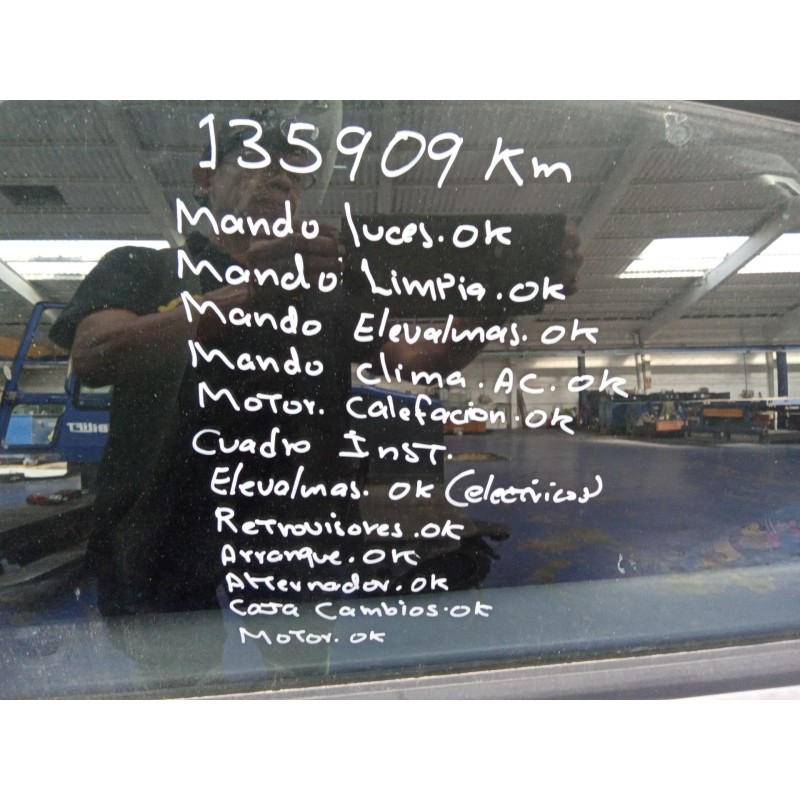 135909 Km
Mando luces. OK
Mando Limpia. OK
Mando Elevalunas. OK
Mando clima. AC. OK
Motor. Calefacion. OK
Cuadro Inst.
Elevalunas. OK (electricos)
Retrovisores. OK
Arranque. OK
Alternador. OK
Caja Cambios. OK
Motor. OK